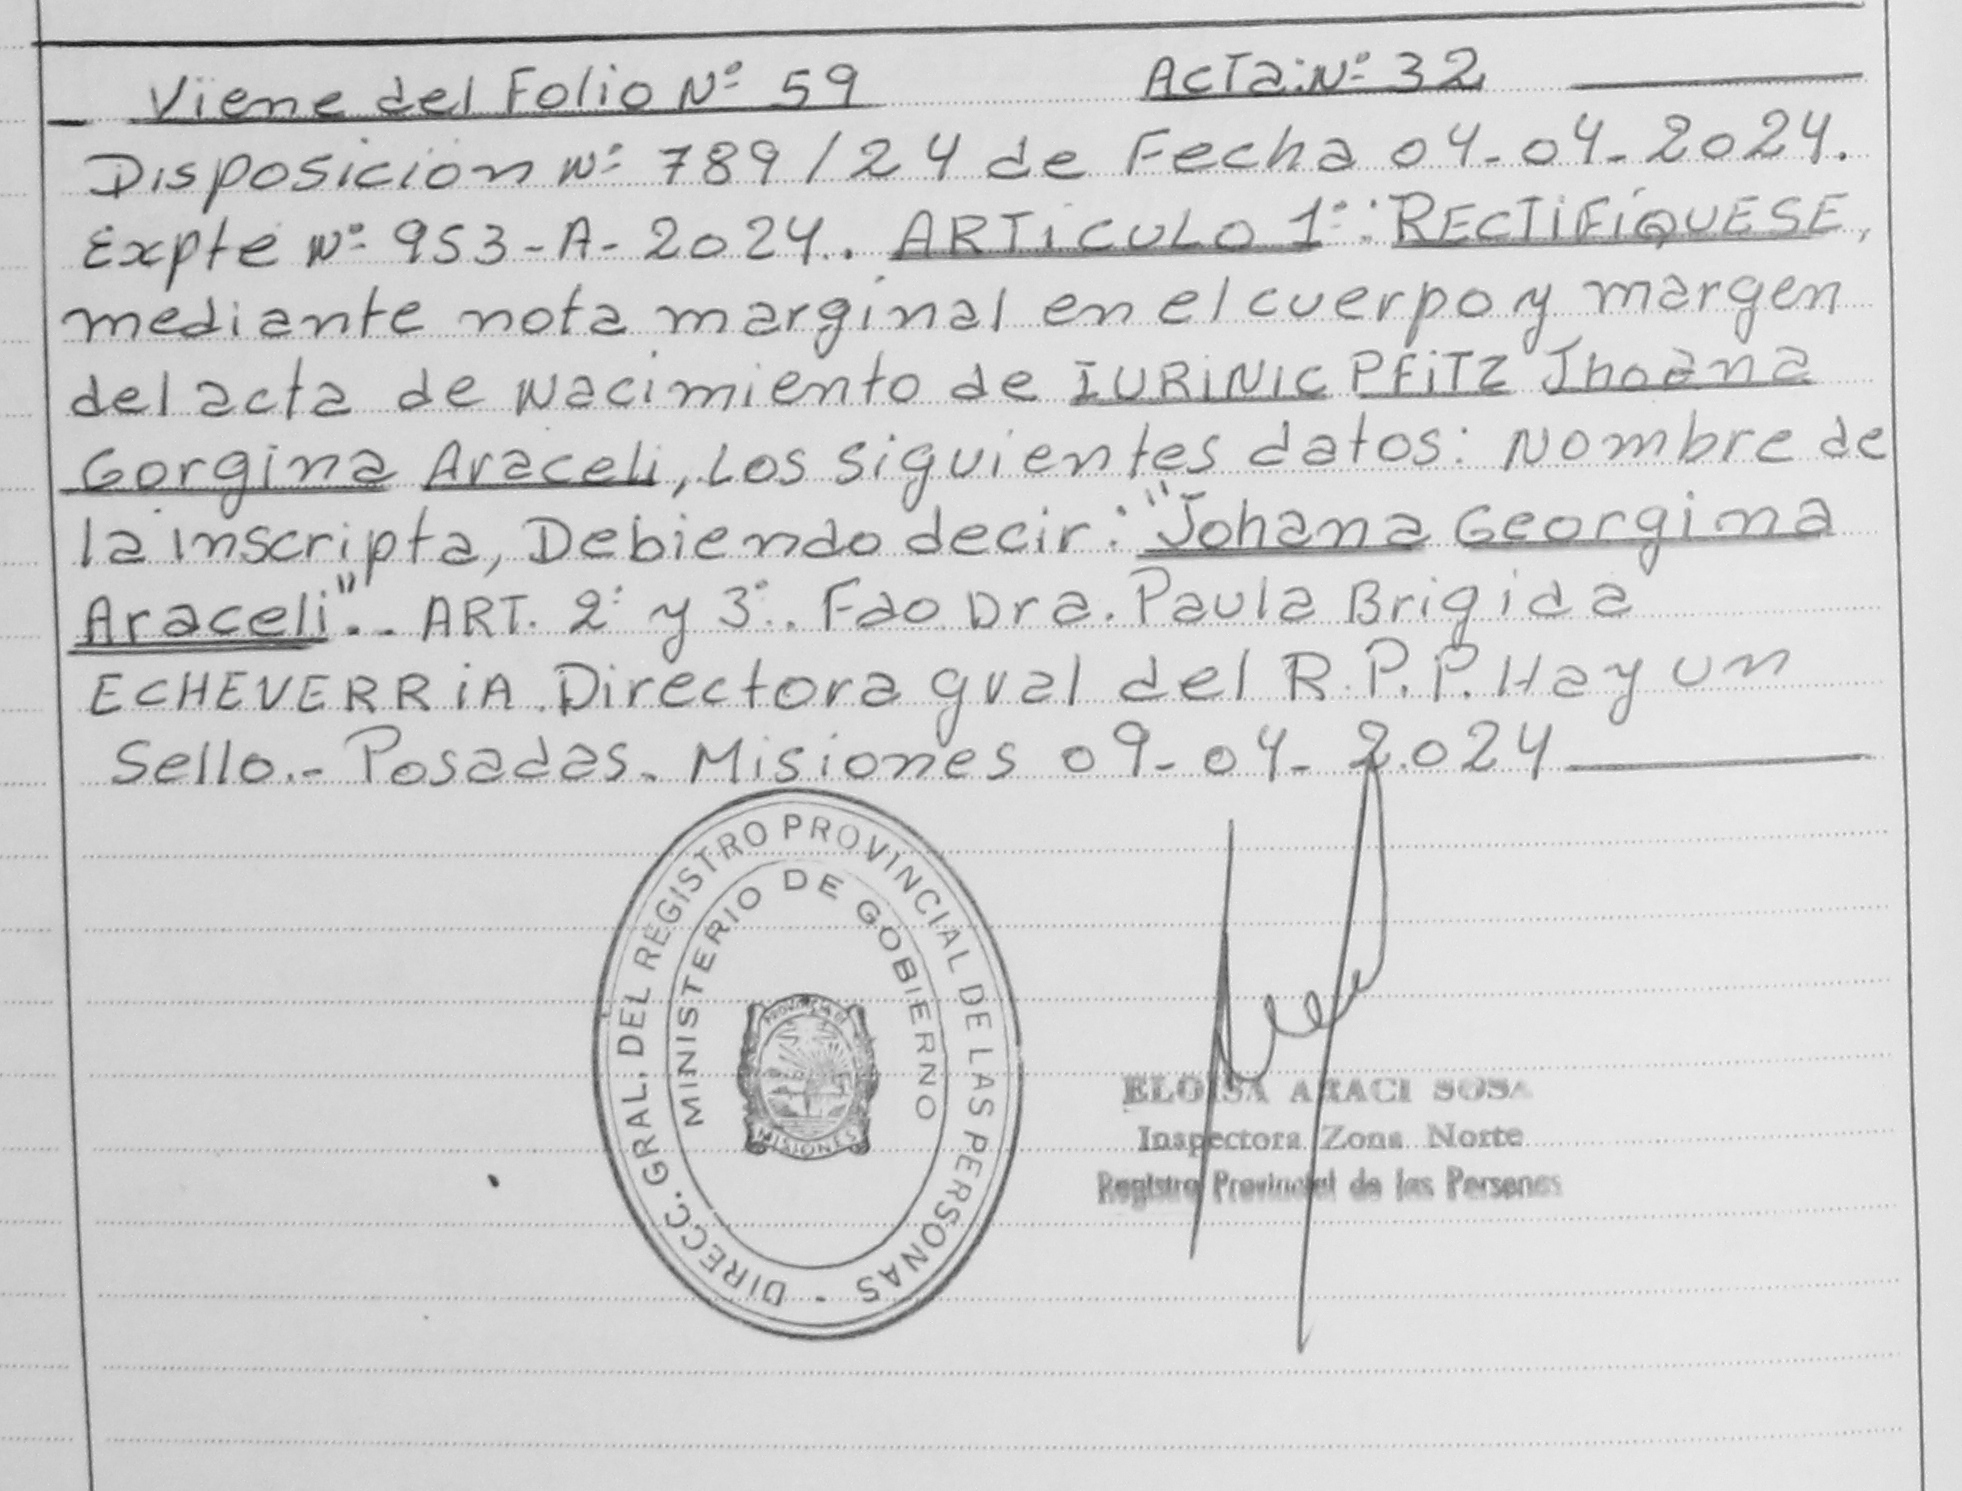 Viene del Folio Nº 59 Acta: Nº 32
Disposición Nº 789/24 de Fecha 04-04-2024.
Expte Nº 953-A-2024. ARTíCULO 1º: RECTIFíQUESE,
mediante nota marginal en el cuerpo y margen
del acta de Nacimiento de IURINIC PFITZ Jhoana
Gorgina Araceli, Los siguientes datos: Nombre de
la inscripta, Debiendo decir: "Johana Georgina
Araceli".- ART. 2º y 3º. Fdo Dra. Paula Brigida
ECHEVERRIA. Directora gral del R.P.P. Hay un
Sello.- Posadas. Misiones 09-04-2024
DIRECC. GRAL. DEL REGISTRO PROVINCIAL DE LAS PERSONAS -
MINISTERIO DE GOBIERNO
PROVINCIA DE
MISIONES
ELOISA ARACI SOSA
Inspectora Zona Norte
Registro Provincial de las Personas